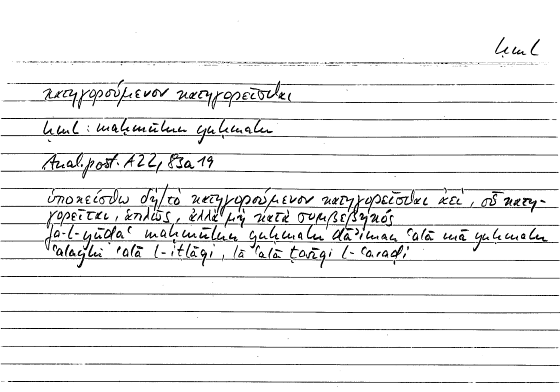 ḥml
κατηγορούμενον κατηγορεῖσθαι
ḥml : maḥmūlun yuḥmalu
Anal. post. A22, 83a19
ὑποκείσθω δὴ/τὸ κατηγορούμενον κατηγορεῖσθαι ἀεί, οὗ κατη-
γορεῖται, ἁπλῶς, ἀλλὰ μὴ κατὰ συμβεβηκός
fa-l-yūḍaʿ maḥmūlun yuḥmalu dāʾiman ʿalā mā yuḥmalu
ʿalayhi ʿalā l-iṭlāqi, lā ʿalā ṭarīqi l-ʿaraḍi